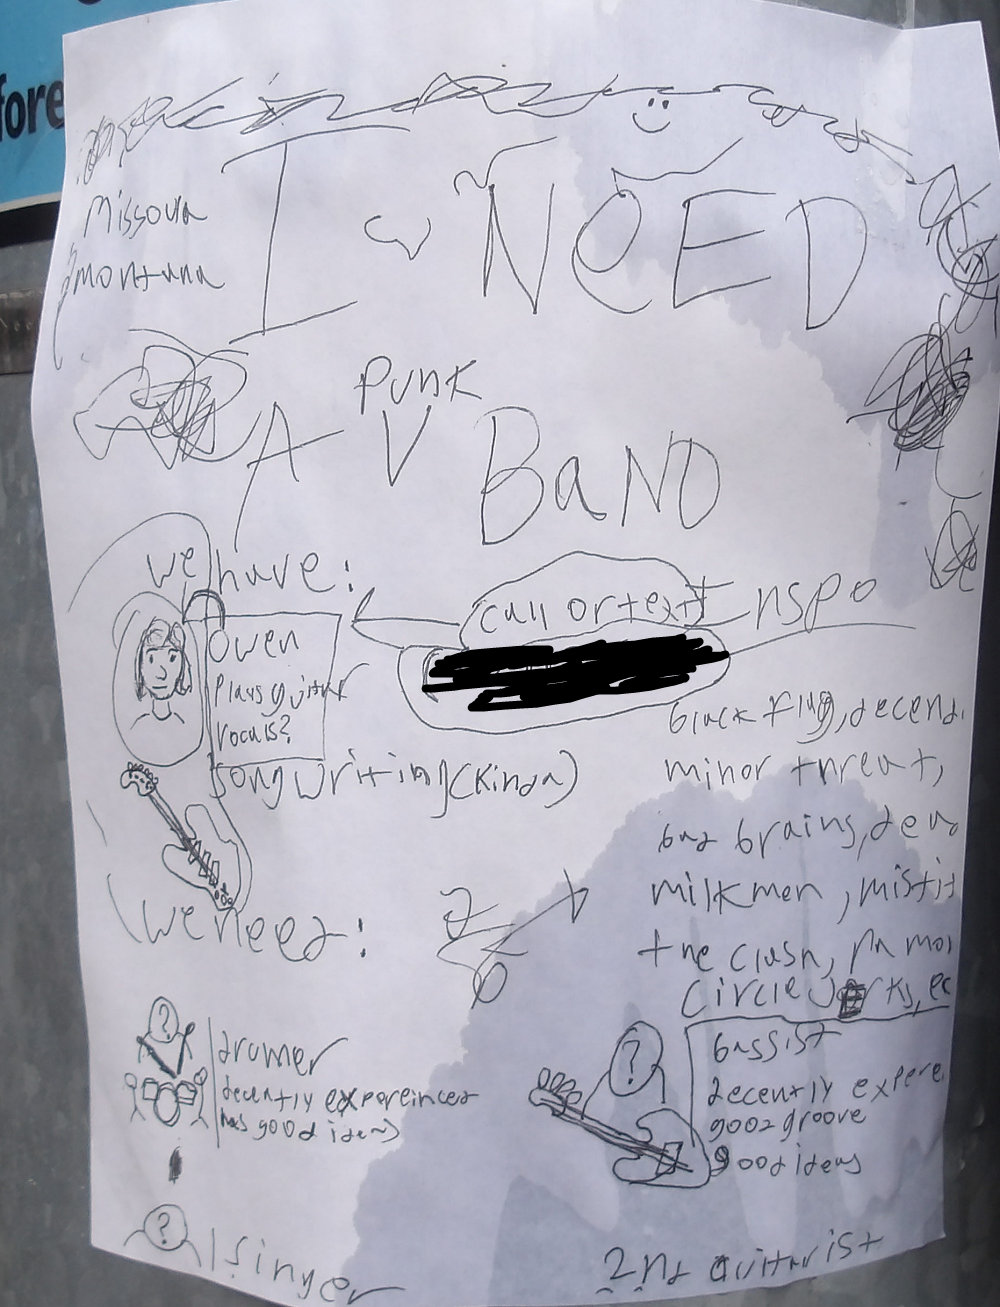 fore
Missoula
montana
I NEED
PUNK
A V BaND
we have:
call or text
Inspo
Owen
Plays guitar
vocals?
song writing (kinda)
black flag, decend
minor threat,
bad brains, dead
milkmen, misfit
the clash, Ramon
circle jerks, ec
we need:
drumer
decently expereinced
has good ideas
bassist
decently expere
good groove
good ideas
singer
2nd guitarist